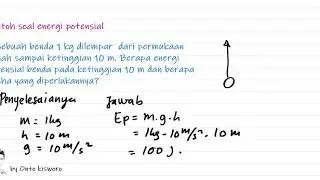 toh soal energi potensial
sebuah benda 1 kg dilempar dari permukaan
nah sampai ketinggian 10 m. Berapa energi
tensial benda pada ketinggian 10 m dan berapa
ha yang diperlukannya?
Penyelesaianya Jawab
m = 1kg Ep = m.g.h
h = 10 m = 1kg - 10 m/s². 10 m
g = 10 m/s² = 100 J.
by Onto kisworo